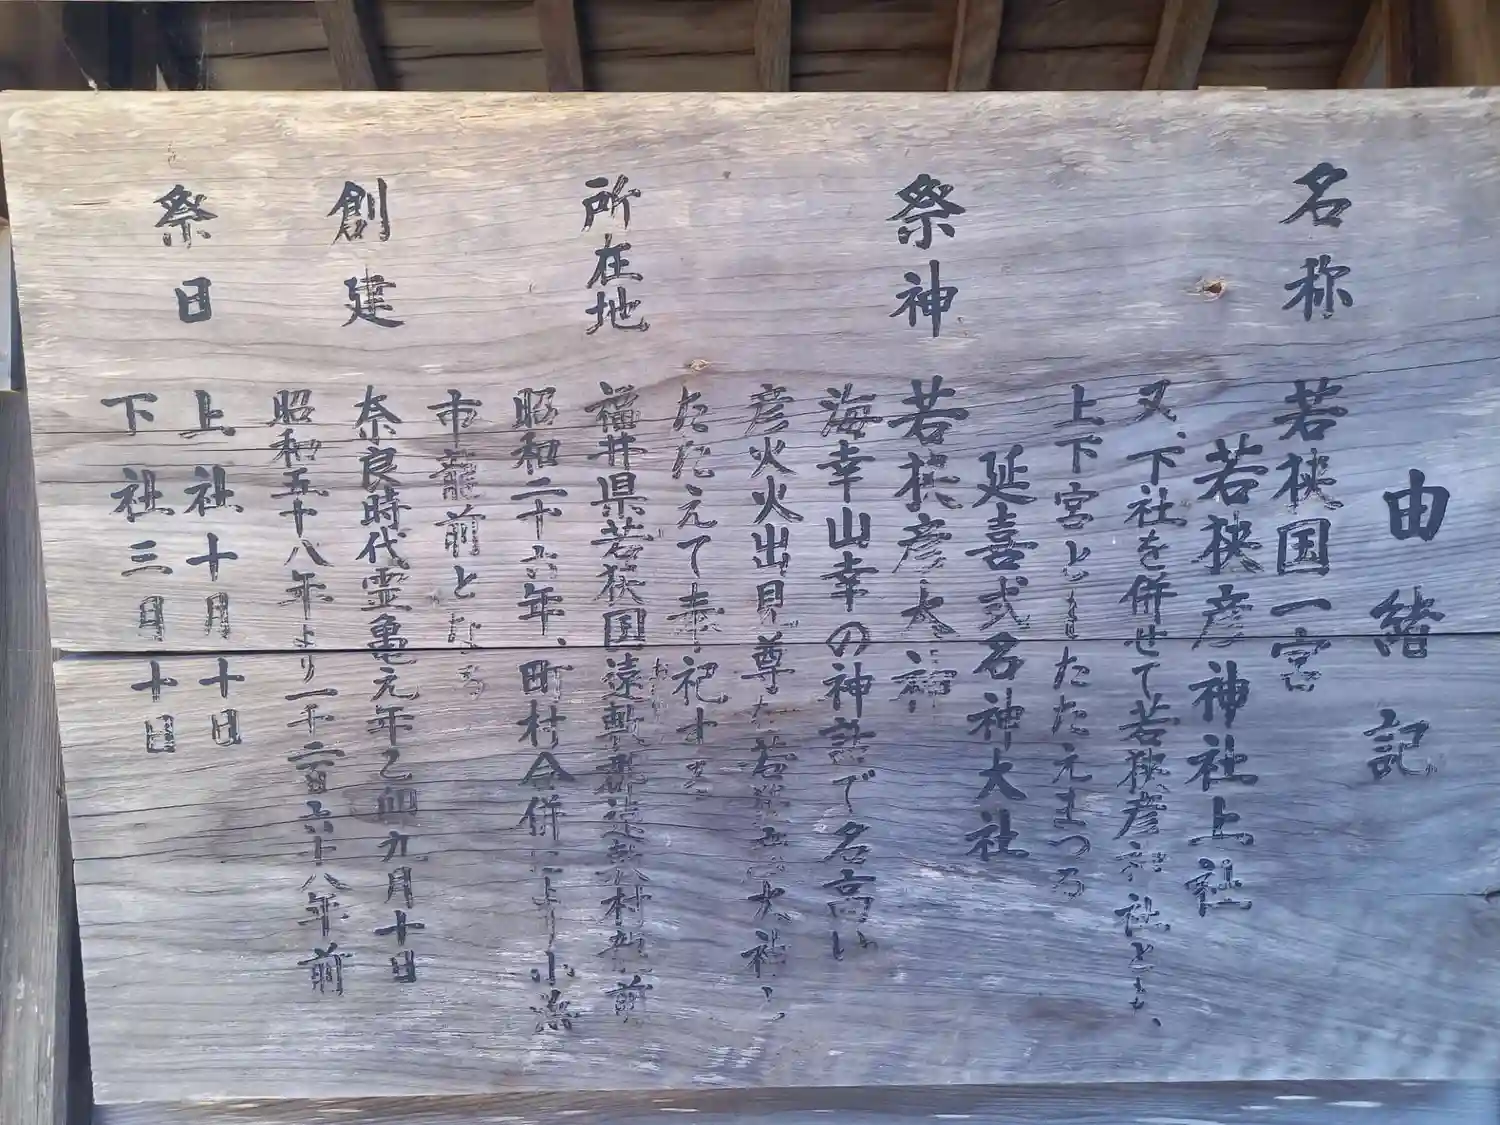 由緒記
名称 若狭国一宮
若狭彦神社上社
又、下社を併せて若狭彦神社とも、
上下宮ともたた元まつる
延喜式名神大社
祭神 若狭彦大神
海幸山幸の神話で名高い
彦火火出見尊を若狭彦大神と
たたえて奉祀す
所在地 福井県若狭国遠敷郡遠敷村龍前
昭和二十六年、町村合併により小浜
市龍前となる
創建 奈良時代霊亀元年乙卯九月十日
昭和五十八年より一千二百六十八年前
祭日 上社十月十日
下社三月十日